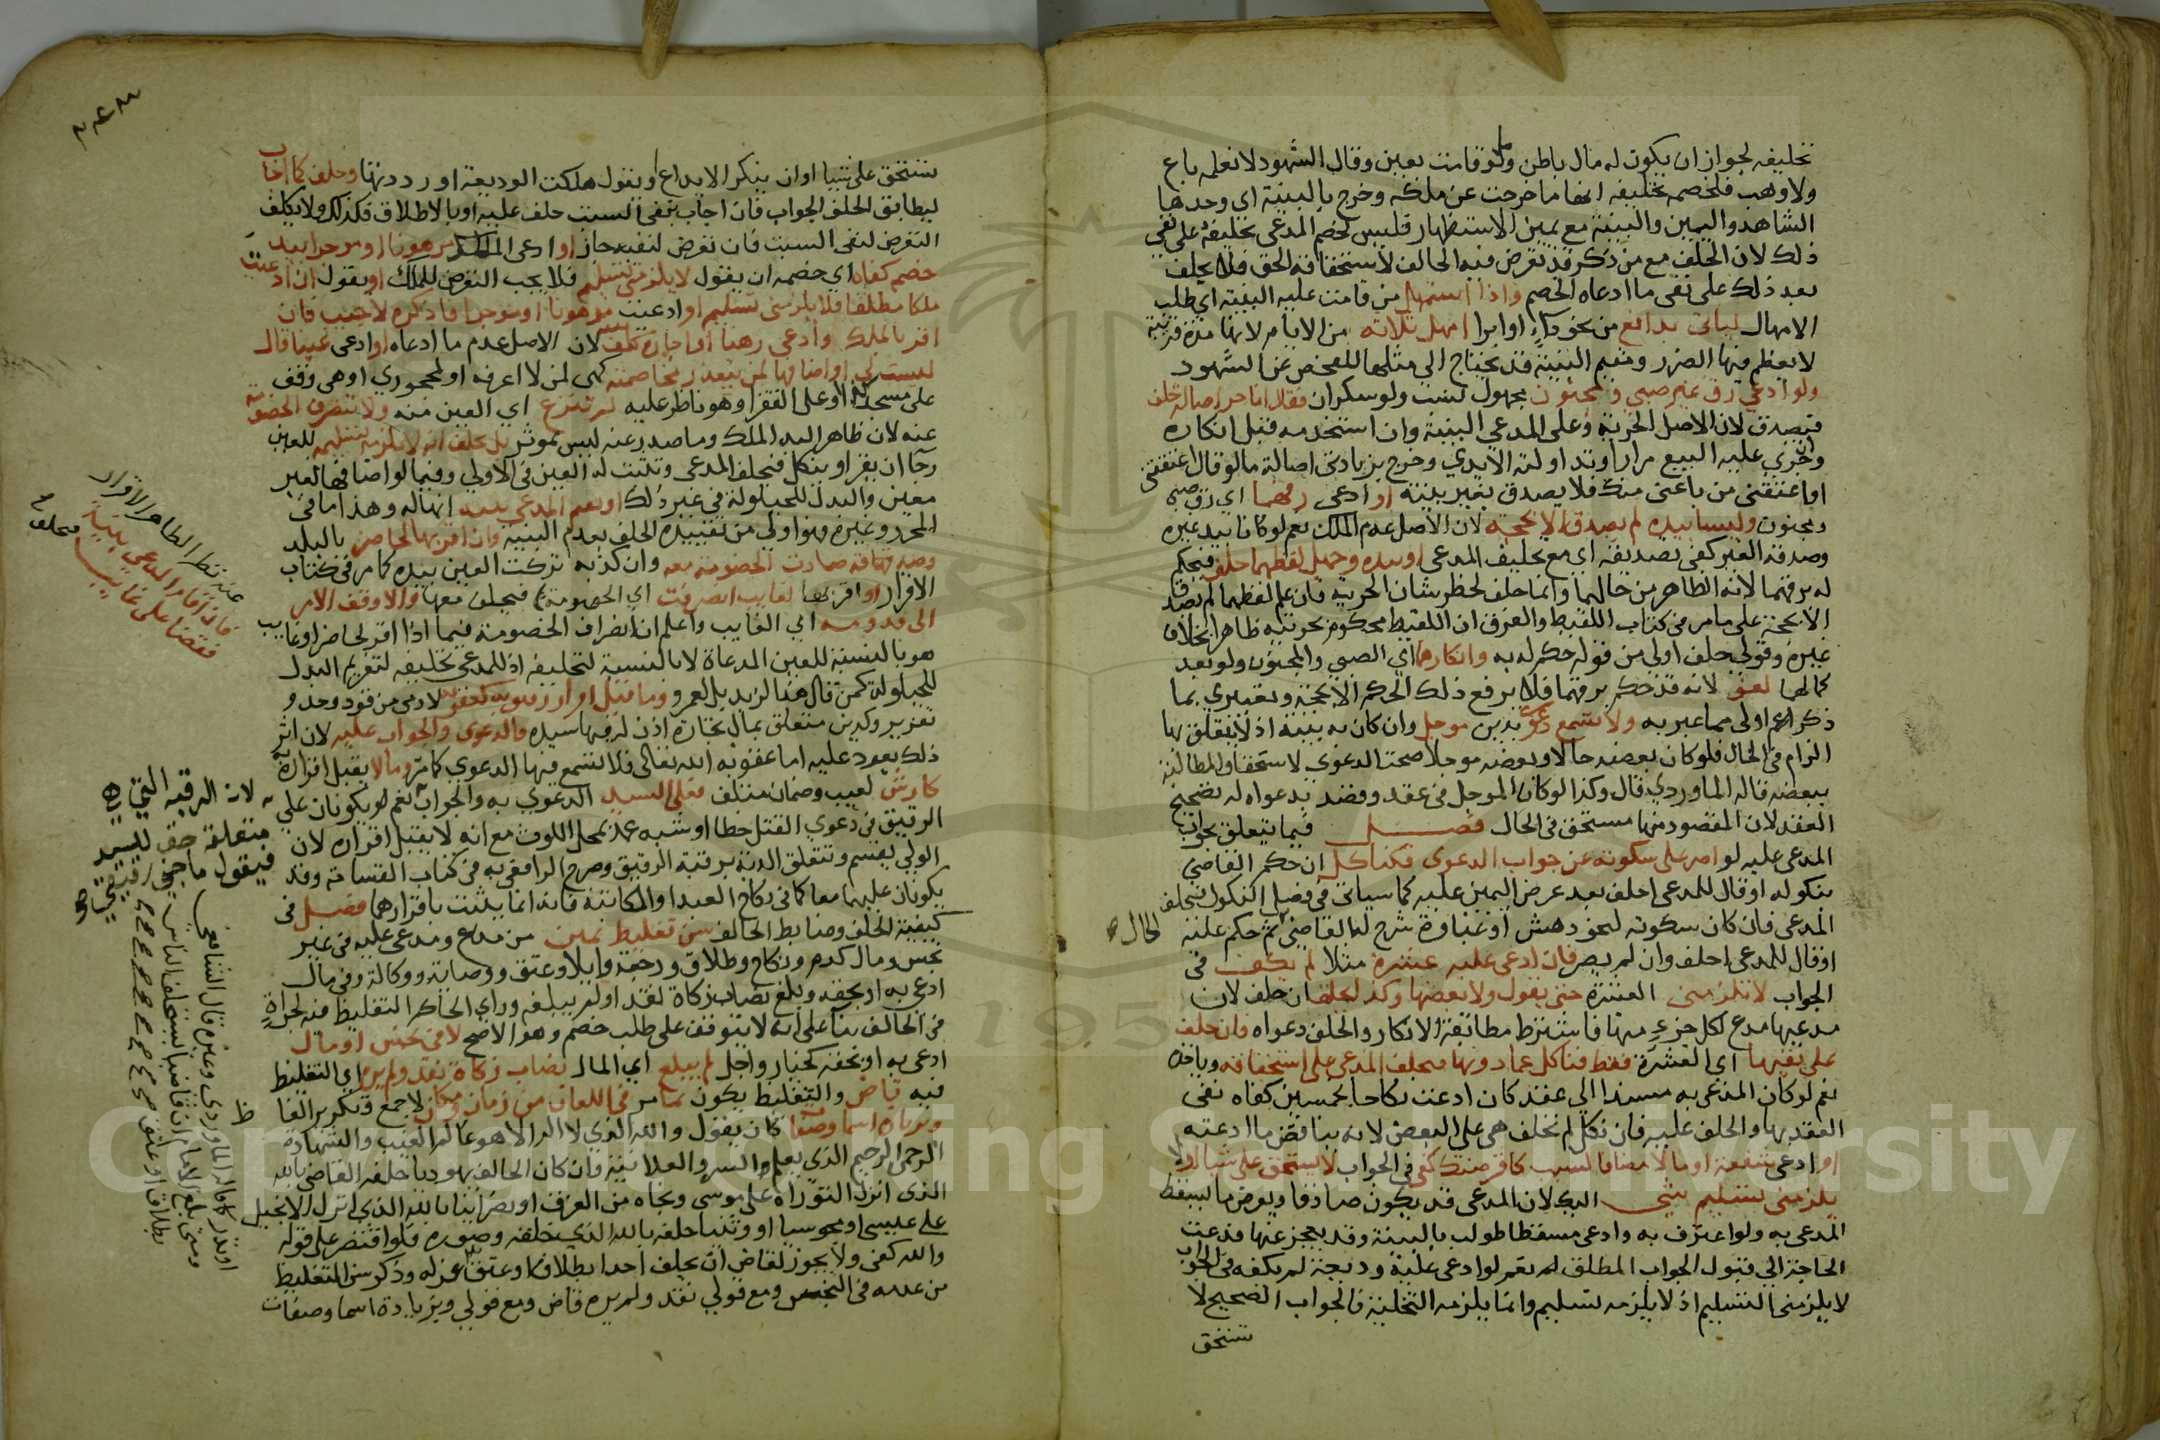 تحليفه لجواز ان يكون له مال باطن ولو قامت بعين وقال الشهود لا نعلمه باع
ولا وهب فلخصمه تحليفه انها ما خرجت عن ملكه وخرج بالبينة اى وحدها
الشاهد واليمين والبينة مع يمين الاستظهار فليس لخصم المدعى تحليفه على نفي
ذلك لان الحلف مع من ذكر قد تعرض فيه الحالف لاستحقاقه الحق فلا يحلف
بعد ذلك على نفى ما ادعاه الخصم واذا استمهل من قامت عليه البينة اي طلب
الامهال لياتى بدافع من نحو اداء او ابرا امهل ثلاثة من الايام لانها مدة قريبة
لا يعظم فيها الضرر ومقيم البينة قد يحتاج الى مثلها للفحص عن الشهود
ولو ادعي رق غير صبي ومجنون مجهول نسب ولو سكران فقال انا حر اصالة حلف
فيصدق لان الاصل الحرية وعلى المدعي البينة وان استخدمه قبل انكاره
وجرى عليه البيع مرارا وتداولته الايدي وخرج بزيادتى اصالة ما لو قال اعتقتنى
او اعتقنى من باعنى منك فلا يصدق بغير بينة او ادعى رقهما اي رق صبي
ومجنون وليسا بيده لم يصدق الا بحجة لان الاصل عدم الملك نعم لو كانا بيد غيره
وصدقه الغير كفى تصديقه اى مع تحليف المدعى او بيده وجهل لقطهما حلف فيحكم
له برقهما لانه الظاهر من حالهما وانما حلف لخطر شان الحرية فان علم لقطهما لم يصدق
الا بحجة على ما مر فى كتاب اللقيط والفرق ان اللقيط محكوم بحريته ظاهرا بخلاف
غيره وقولى حلف اولى من قوله حكم له به وانكارهما اي الصبي والمجنون ولو بعد
كمالهما لغو لانه قد حكم برقهما فلا يرفع ذلك الحكم الا بحجة وتعبيرى بما
ذكر اعم اولى مما عبر به ولا تسمع دعوى بدين موجل وان كان به بينة اذ لا يتعلق بها
الزام فى الحال فلو كان بعضه حالا وبعضه موجلا صحت الدعوى لاستحقاق المطالبة
ببعضه قاله الماوردي قال وكذا لو كان الموجل فى عقد وقصد بدعواه له تصحيح
العقد لان المقصود منها مستحق فى الحال فصل فيما يتعلق بجواب
المدعى عليه لو اصر على سكوته عن جواب الدعوى فكناكل ان حكم القاضي
بنكوله او قال للمدعى احلف بعد عرض اليمين عليه كما سياتى فى فصل النكول فيحلف
المدعى فان كان سكوته لنحو دهش او غباوة شرح له القاضي ثم حكم عليه
الحال ه
او قال للمدعى احلف وان لم يصر فان ادعى عليه عشرة مثلا لم يكف فى
الجواب لا تلزمنى العشرة حتى يقول ولا بعضها وكذا يحلف ان حلف لان
مدعيها مدع لكل جزء منها فاشترط مطابقة الانكار والحلف دعواه فان حلف
على نفيها اى العشرة فقط فناكل عما دونها فيحلف المدعى على استحقاقه وياخذه
نعم لو كان المدعى به مسندا الى عقد كان ادعت نكاحا بخمسين كفاه نفى
العقد بها والحلف عليه فان نكل لم تحلف هى على البعض لانه يناقض ما ادعته
او ادعى شفعة او مالا مضافا لسبب كاقرضتك كفى فى الجواب لا يستحق على شيا او لا
يلزمنى تسليم شى اليك لان المدعى قد يكون صادقا ويعرض ما يسقط
المدعى به ولو اعترف به وادعى مسقطا طولب بالبينة وقد يعجز عنها فدعت
الحاجة الى قبول الجواب المطلق نعم لو ادعى عليه وديعة لم يكفه فى الجواب
لا يلزمنى التسليم اذ لا يلزمه تسليم وانما يلزمه التخلية فالجواب الصحيح لا
تستحق
يستحق على شيا او ان ينكر الايداع او يقول هلكت الوديعة او رددتها وحلف كما اجاب
ليطابق الحلف الجواب فان اجاب بنفى السبب حلف عليه او بالاطلاق فكذلك ولا يكلف
التعرض لنفى السبب فان تعرض لنفيه جاز او ادعى المالك مرهونا او موجرا بيد
خصم كفاه اي خصمه ان يقول لا يلزمنى تسليم فلا يجب التعرض للملك او يقول ان ادعيت
ملكا مطلقا فلا يلزمنى تسليم او ادعيت مرهونا او موجرا فاذكره لاجيب فان
اقر بالملك وادعي رهنا او اجارة كلف بينة لان الاصل عدم ما ادعاه او ادعى عينا فقال
ليست لى او اضافها لمن تتعذر مخاصمته كهى لمن لا اعرفه او لمحجوري او هى وقف
على مسجد كذا او على الفقرا وهو ناظر عليه لم تنزع اي العين منه ولا تنصرف الخصومة
عنه لان ظاهر اليد الملك وما صدر عنه ليس بموثر بل يحلف انه لا يلزمه تسليمه للعين
رجا ان يقر او ينكل فيحلف المدعى وتثبت له العين فى الاولى وفيما لو اضافها لغير
معين والبدل للحيلولة فى غير ذلك او يقيم المدعى بينة انها له وهذا ما فى
المحرر وغيره وهو اولى من تقييده الحلف بعدم البينة وان اقر بها لحاضر بالبلد
وصدقه صارت الخصومة معه وان كذبه تركت العين بيده كما مر فى كتاب
الاقرار او اقر بها لغايب انصرفت اي الخصومة عنه نظرا لظاهر الاقرار
فان اقام المدعى بينة
فقضا على غايب فيحلف معها والا وقف الامر
الى قدومه اي الغايب واعلم ان انصراف الخصومة فيما اذا اقر لحاضر او غايب
هو بالنسبة للعين المدعاة لا بالنسبة لتحليفه اذ للمدعي تحليفه لتغريم البدل
للحيلولة كمن قال هذا لزيد بل لعمرو وما قبل اقرار رقيق به كعقوبة لادمى من قود وحد و
تعزير وكدين متعلق بمال تجارة اذن له فيها سيده فالدعوى والجواب عليه لان اثر
ذلك يعود عليه اما عقوبة الله تعالى فلا تسمع فيها الدعوى كما مر وما لا يقبل اقراره به
كارش لعيب وضمان متلف فعلى السيد الدعوى به والجواب نعم لو يكونان على
لان الرقبة التى هي
متعلقه حق للسيد
فيقول ما جنى رقيقي ه
الرقيق فى دعوى القتل خطا او شبه عمد بمحل اللوث مع انه لا يقبل اقراره لان
الولي يقسم وتتعلق الدية برقبة الرقيق وصرح الرافعى به فى كتاب القسامة وقد
يكونان عليهما معا كما فى نكاح العبد او المكاتبة فانه انما يثبت باقرارهما فصل فى
كيفية الحلف وضابط الحالف سن تغليظ يمين من مدع ومدعى عليه فى غير
نجس ومال كدم ونكاح وطلاق ورجعة وايلا وعتق ووصاية ووكالة وفى مال
ادعى به او بحقه وبلغ نصاب زكاة نقد او لم يبلغه وراي الحاكم التغليظ فيه لجراة
فى الحالف بنا على انه لا يتوقف على طلب خصم وهو الاصح لا فى نجس او مال
ادعى به او بحقه كخيار واجل لم يبلغ اي المال نصاب زكاة نقد ولم يره اى التغليظ
فيه قاض والتغليظ يكون بما مر فى اللعان من زمان ومكان لا جمع وتكرير الفاظ
وبزيادة اسما وصفات كان يقول والله الذي لا اله الا هو عالم الغيب والشهادة
الرحمن الرحيم الذي يعلم السر والعلانية فان كان الحالف يهوديا حلفه القاضي بالله
الذى انزل التوراة على موسى ونجاه من الغرق او نصرانيا بالله الذي انزل الانجيل
على عيسى او مجوسيا او وثنيا حلفه بالله الذى خلقه وصوره فلو اقتصر على قوله
والله كفى ولا يجوز لقاض ان يحلف احدا بطلاق او عتق او نذر كما قاله الماوردى وغيره قال الشافعى
ومتى بلغ الامام ان قاضيا يستحلف الناس
بطلاق او عتق
عزله وذكر سن التغليظ
من عدمه فى النجس ومع قولي نقد ولم يره قاض ومع قولي وبزيادة اسما وصفات
Of
University